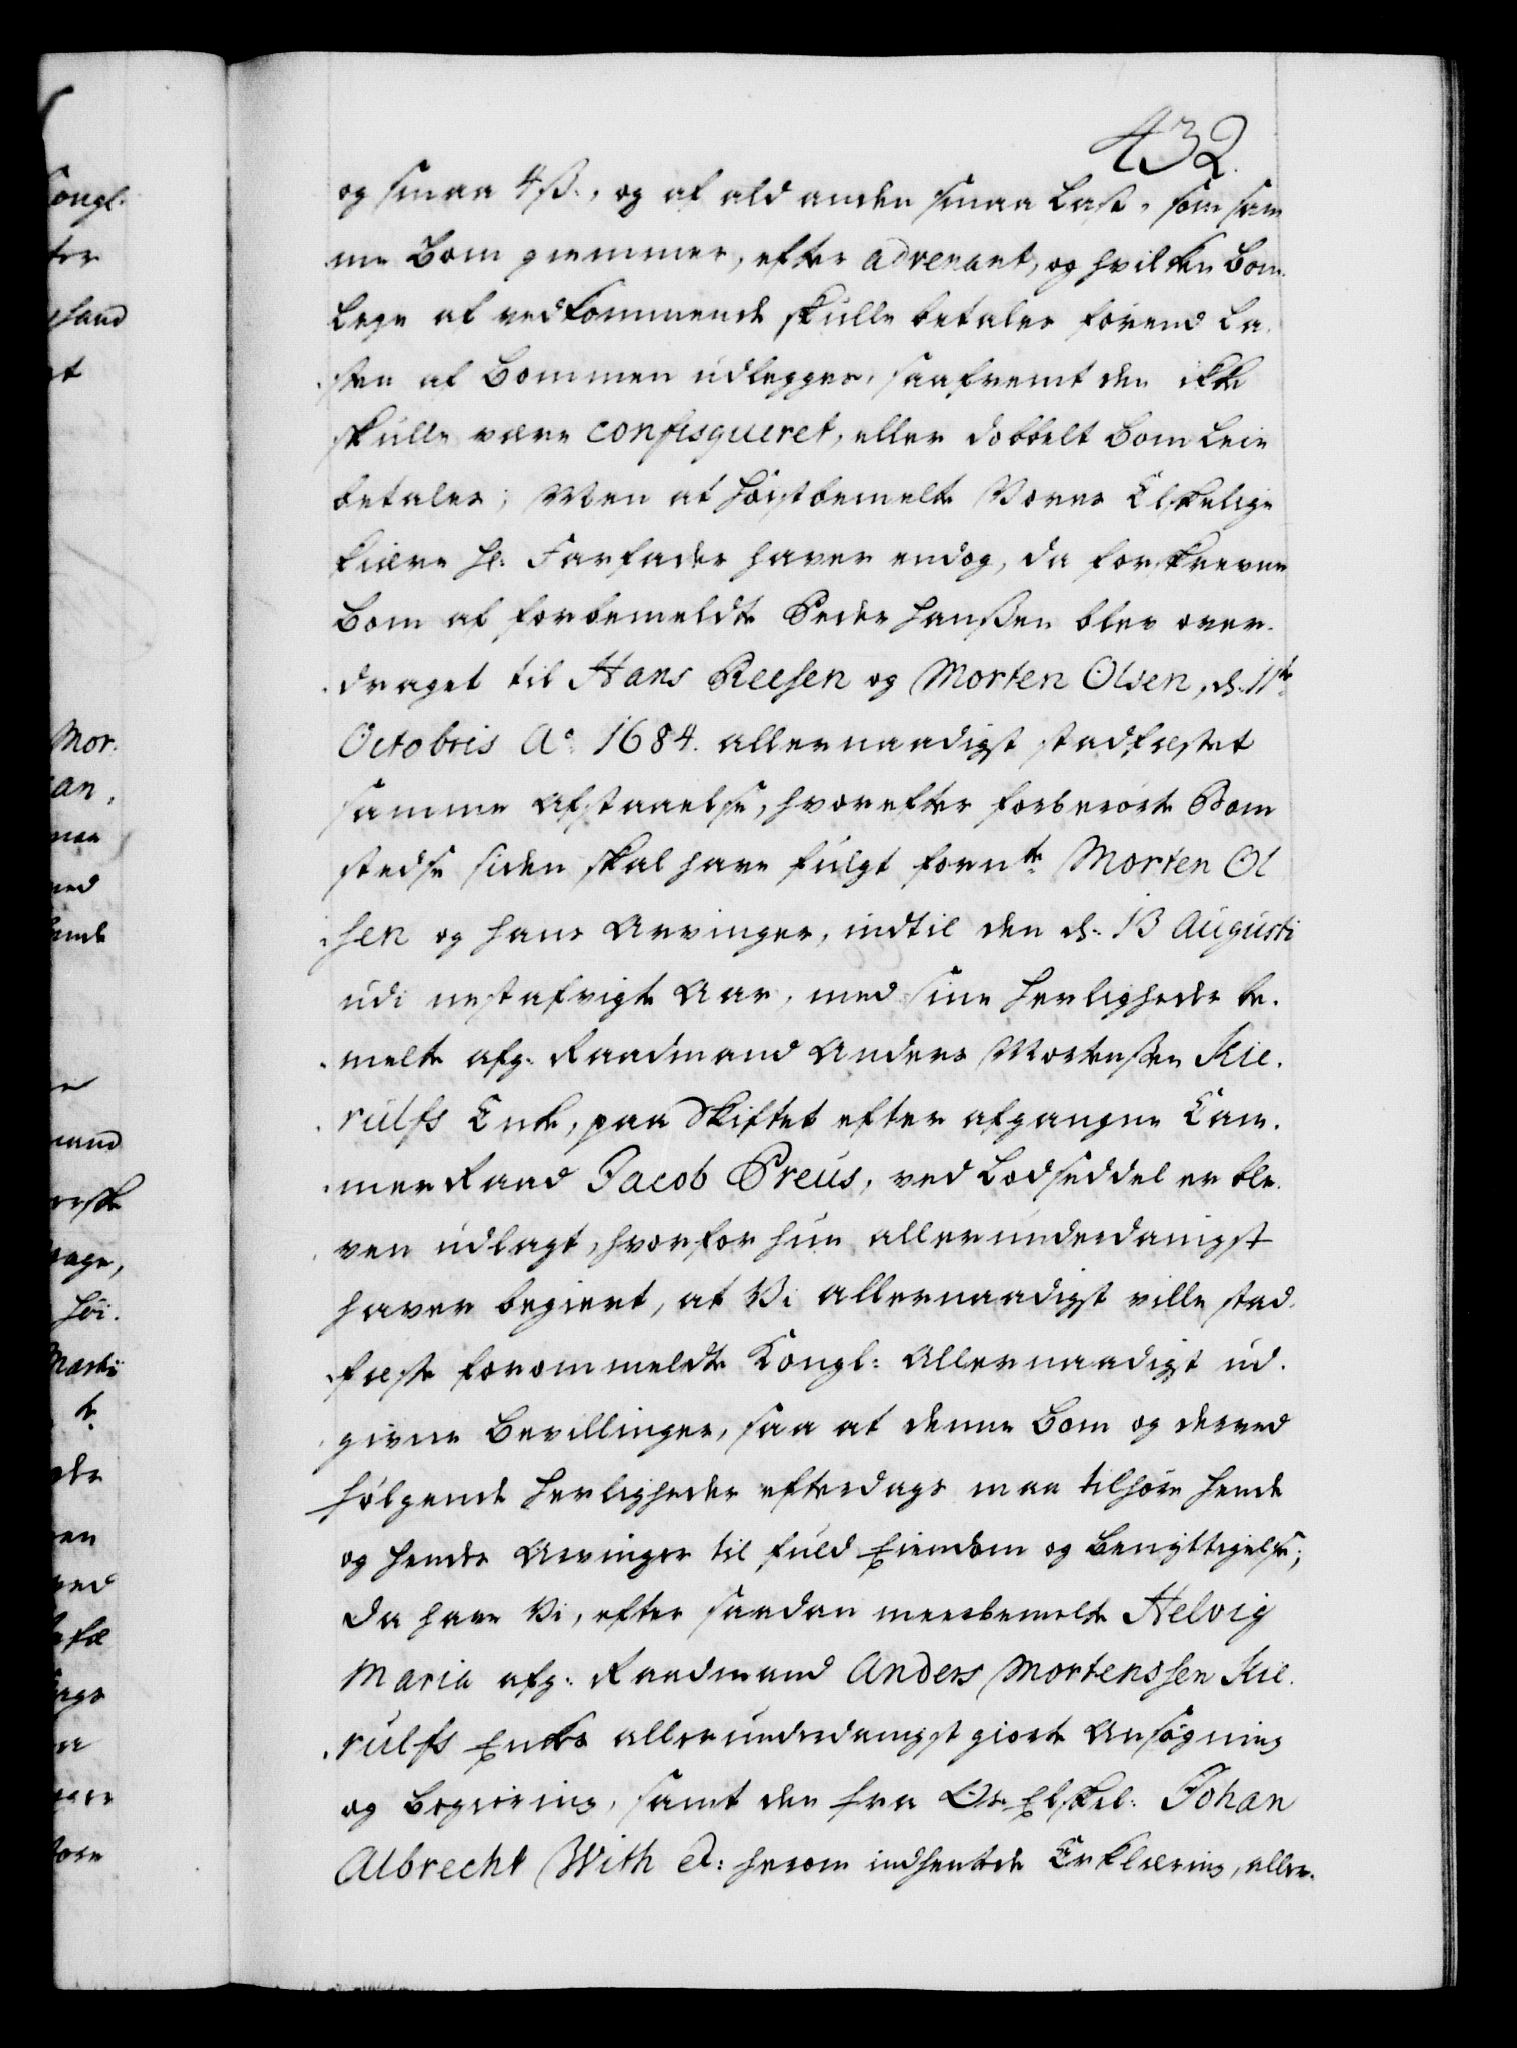 432.
og smaa 4 ß., og af ald anden smaa Last, som sam
me Bom giemmer, efter advenant, og hvilken Bom
Leye af vedkommende skulle betales forend La
sten af Bommen udlegges, saafremt den ikke
skulle være confisqueret, eller dobbelt Bom Leie
betales; Men at høistbemelte Vores Elskelige
kiære Hr. Farfader haver endog, da forskrevne
Bom af forbemeldte Peder Hanßen blev over-
draget til Hans Reesen og Morten Olsen, d. 11te
Octobris Ao. 1684. allernaadigst stadfæstet
samme Afstaaelse, hvorefter forberørte Bom
stedse siden skal have fulgt fornte Morten Ol
sen og hans Arvinger, indtil den d. 13 Augusti
udi nestafvigte Aar, med sine Herligheder be-
melte afg. Raadmand Anders Mortenßen Kie-
rulfs Enke, paa Skiftet efter afgangne Cam-
mer Raad Jacob Preus, ved Lodseddel er ble-
ven udlagt, hvorfor hun allerunderdanigst
haver begiert, at Vi allernaadigst ville stad-
fæste forommeldte Kongl: Allernaadigst ud-
givne Bevillinger, saa at denne Bom og derved
følgende Herligheder efterdags maa tilhøre hende
og hendes Arvinger til fuld Eiendom og Benyttigelse;
Da have Vi, efter saadan meerbemelte Helvig
Maria afg: Raadmand Anders Mortenssen Kie-
rulfs Enkes allerunderdanigst giorte Ansøgning
og Begiering, samt den fra Os Elskel: Johan
Albrecht With etc: herom indhentede Erklæring, aller-